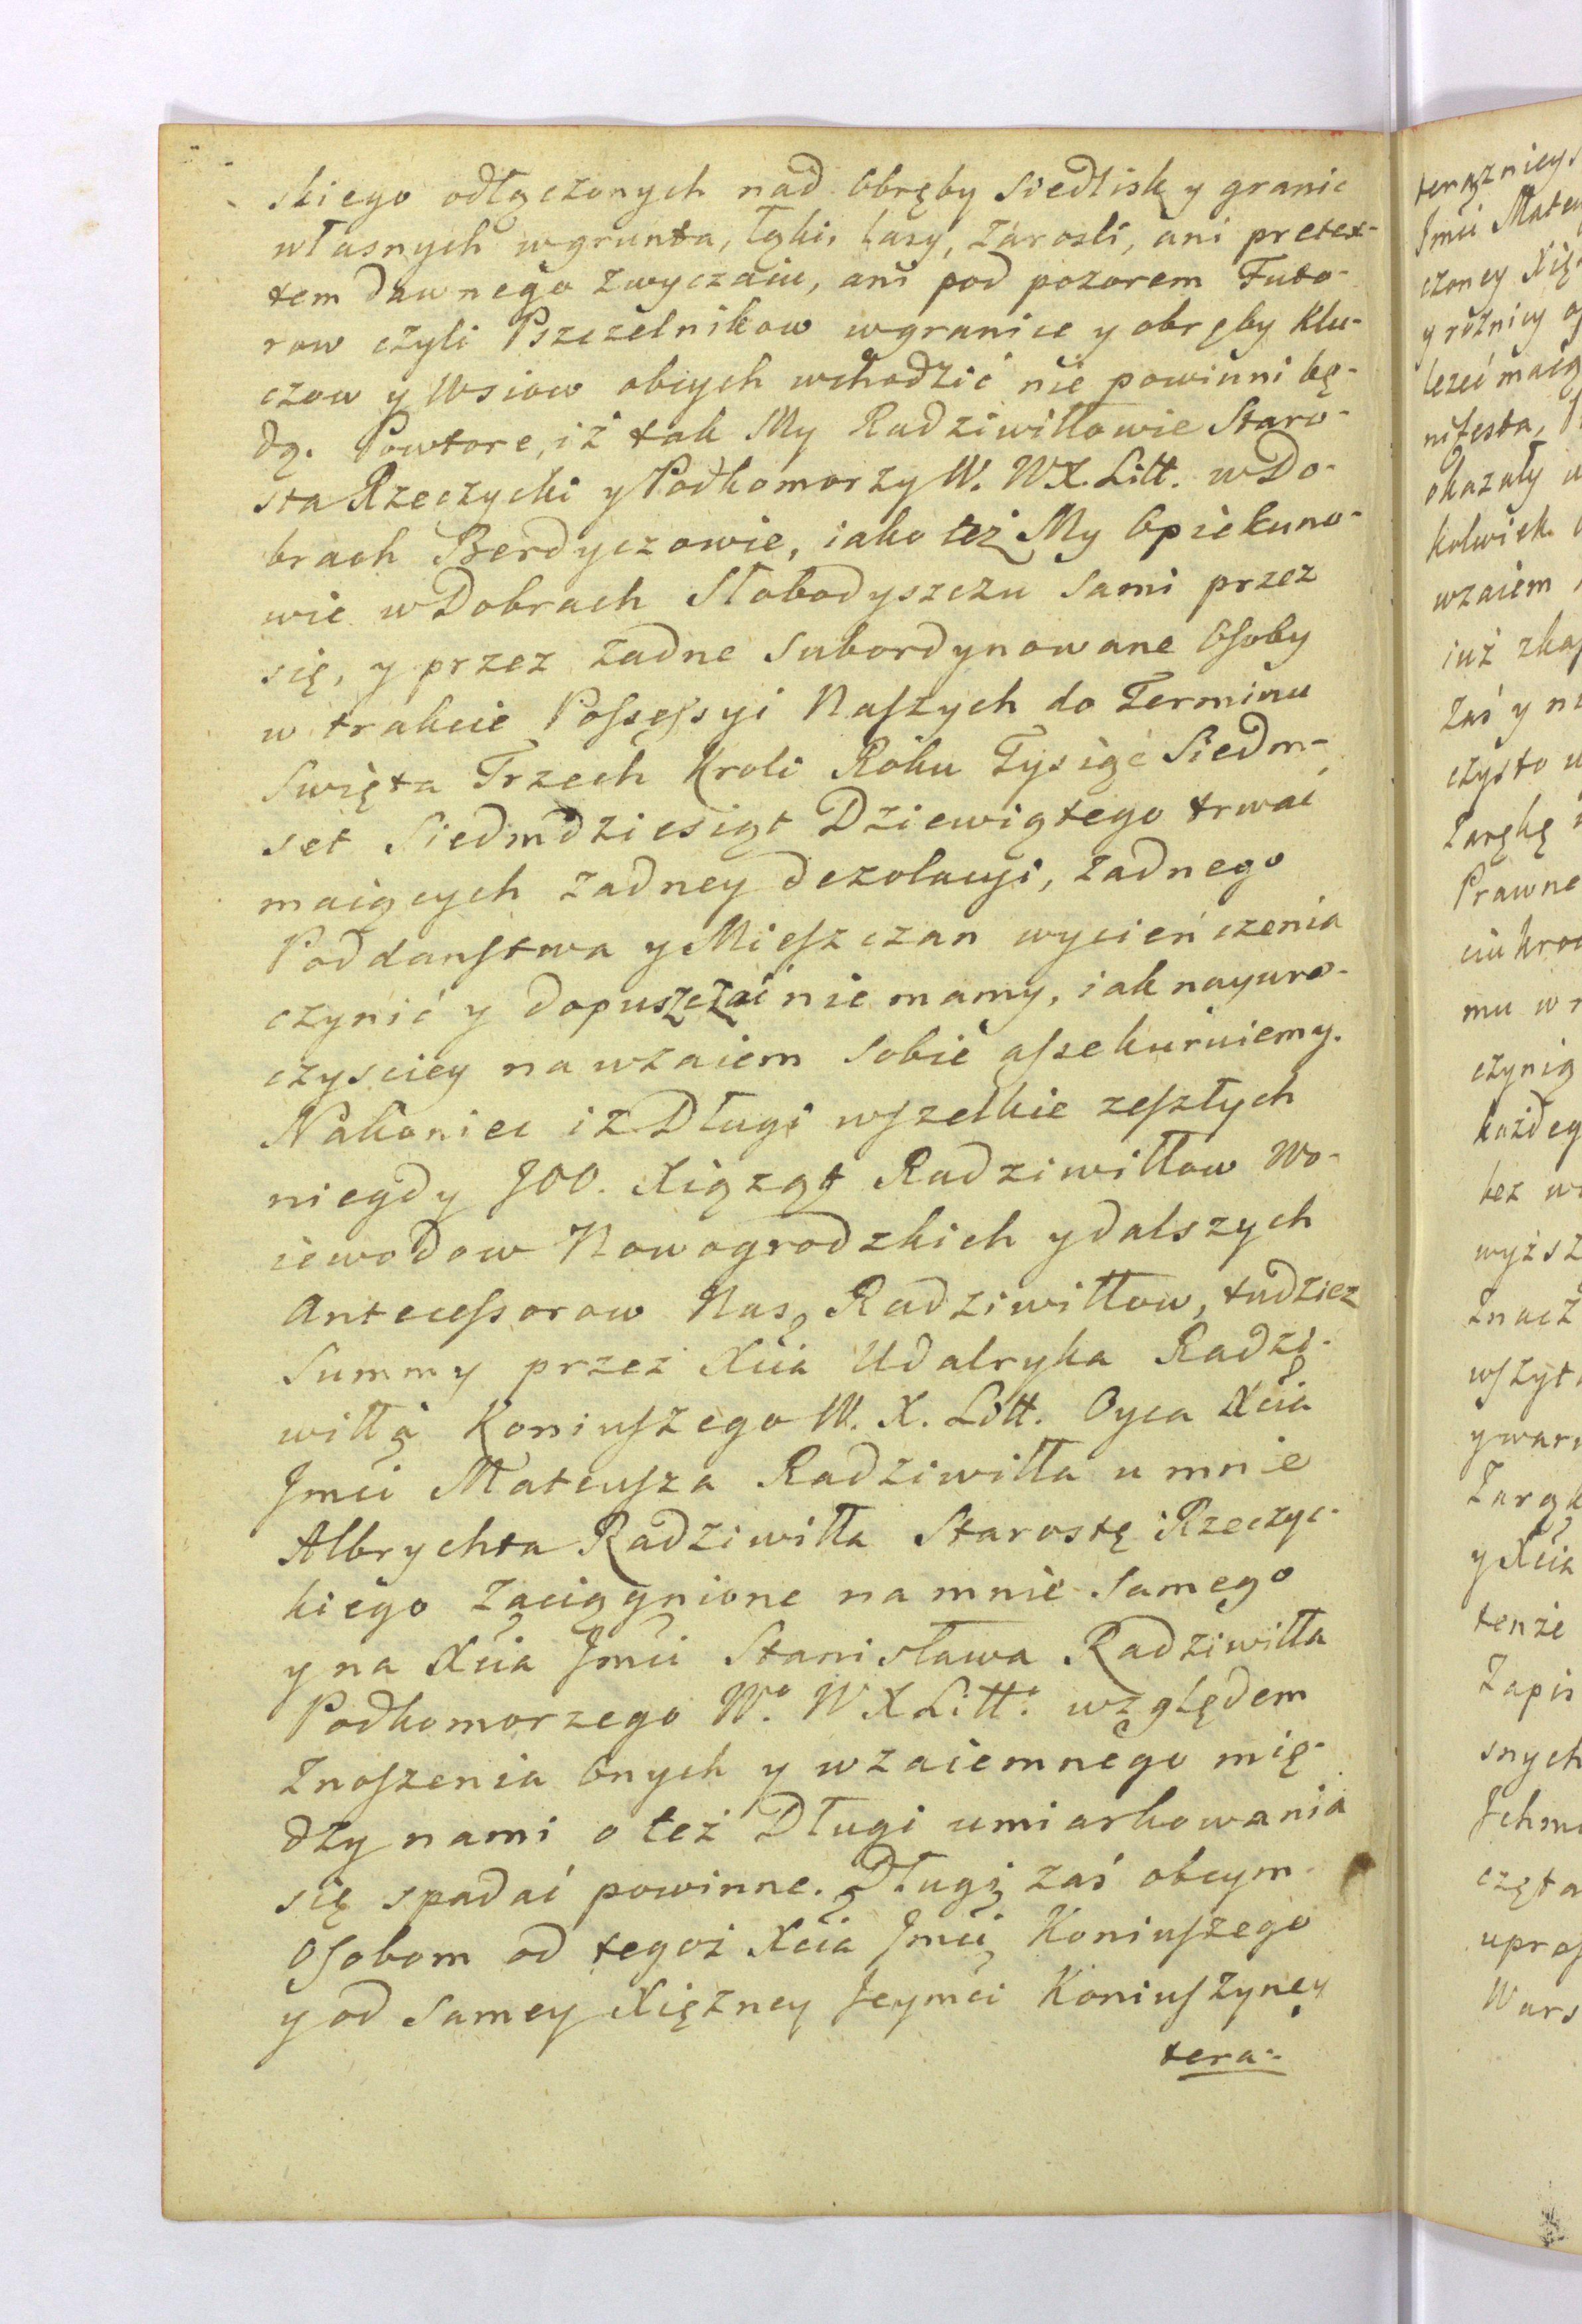 skiego odłączonych nad Obręby Siedlisk y granic
własnych w grunta, Łąki, Lasy, Zarosli, ani pretex-
tem dawnego Zwyczaiu, ani pod pozorem Futo-
row czyli Pszczelnikow w granice y obręby Klu-
czow y Wsiow obcych wchodzić nie powinni bę-
dą. Powtore, iż tak My Radziwiłłowie Staro-
sta Rzeczycki y Podkomorzy W. W.X. Litt. w Do-
brach Berdyczowie, iako też My Opiekuno-
wie w Dobrach Słobodyszczu Sami przez
się, y przez żadne Subordynowane Osoby
w trakcie Possessyi Naszych do Terminu
Swięta Trzech Kroli Roku Tysiąć Siedm-
set Siedmdziesiąt Dziewiątego trwać
maiących żadney dezolacyi, żadnego
Poddanstwa y Mieszczan wycieńczenia
czynić y dopuszczać nie mamy, iak nayuro-
czysciey nawzaiem Sobie assekuruiemy.
Nakoniec iż Długi wszelkie zeszłych
niegdy JOO. Xiążąt Radziwiłłow Wo-
iewodow Nowogrodzkich y dalszych
Antecessorow Nas Radziwiłłow, tudziez
Summy przez Xcia Udalryka Radzi-
wiłła Koniuszego W. X. Litt. Oyca Xcia
Jmci Mateusza Radziwiłła u mnie
Albrychta Radziwiłła Starostę Rzeczyc-
kiego Zaciągnione na mnie Samego
y na Xcia Jmci Stanisława Radziwiłła
Podkomorzego Wo. W X Litt: względem
Znoszenia Onych y wzaiemnego mię-
dzy nami o też Długi umiarkowania
się spadać powinne. Długi zaś obcym
Osobom od tegoż Xcia Jmci Koniuszego
y od Samey Xiężney Jeymci Koniuszyney
tera-